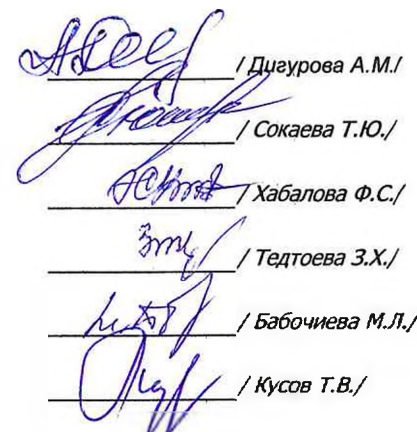 / Дигурова А.М./
/ Сокаева Т.Ю./
/ Хабалова Ф.С./
/ Тедтоева З.Х./
/ Бабочиева М.Л./
/ Кусов Т.В./